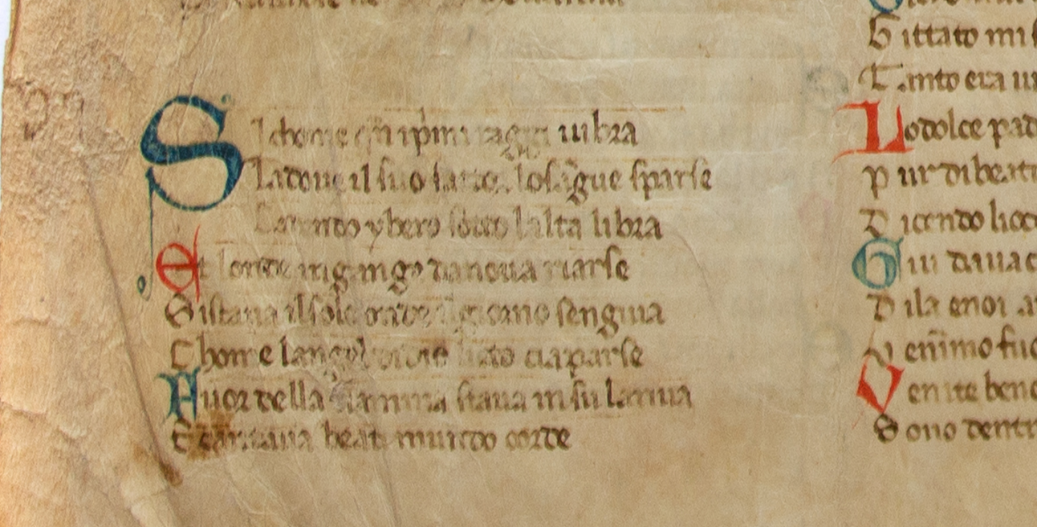 S I chome qñ ip̃mi raggi uibra
Ladoue il suo fattor losãgue sparse
Cadendo ybero sotto lalta libra
Et londe ingange danoua riarse
Sistaua ilsole onde ilgiorno sengiua
Chome langel didio lieto ciaparse
Fuor della fiamma staua insu lariua
E cantaua beati mundo corde
Gittato mi
Tanto era
Lo dolce pad
Pur di beat
Dicendo
Gui daua
Di la enoi
Venimo fuo
Venite bene
Sono dentr